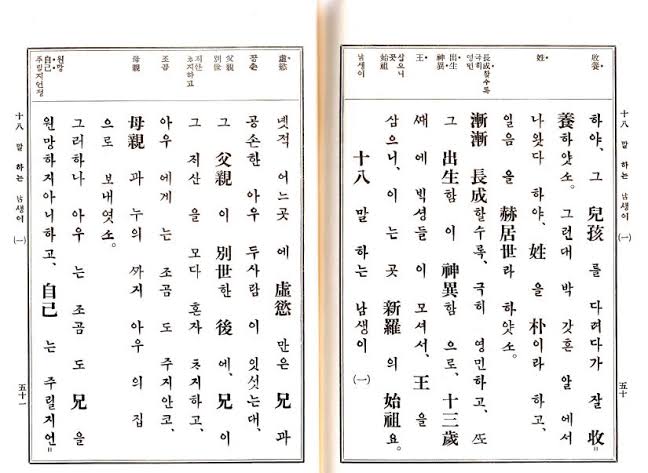 十八 말 하는 남생이 (一)
五十
收養•
姓•
長成할수록
극히
영민
出生•
神異•
王•
삼으니
곳
始祖
남생이
하야, 그 兒孩 를 다려다가 잘 收=
養하얏소. 그런대 박 갓흔 알 에서
나왓다 하야, 姓 을 朴이라 하고,
일음 을 赫居世라 하얏소.
漸漸 長成할수록, 극히 영민하고, ᄯᅩ
그 出生함 이 神異함 으로, 十三歲
ᄯᅢ 에 빅셩들 이 모셔서, 王 을
삼으니, 이 는 곳 新羅 의 始祖요.
十八 말 하는 남생이 (一)
虛慾•
공손
父親
別世•
재산
ᄎᆞ지하고
조곰
母親
원망
自己•
주릴지언정
넷적 어느곳 에 虛慾 만은 兄 과
공손한 아우 두사람 이 잇섯는대,
그 父親 이 別世한 後 에, 兄 이
그 재산 을 모다 혼자 ᄎᆞ지하고,
아우 에게 는 조곰 도 주지안코,
母親 과 누의 ᄭᅡ지 아우 의 집
으로 보내엿소.
그러하나 아우 는 조곰도 兄 을
원망하지아니하고, 自己 는 주릴지언=
十八 말 하는 남생이 (一)
五十一